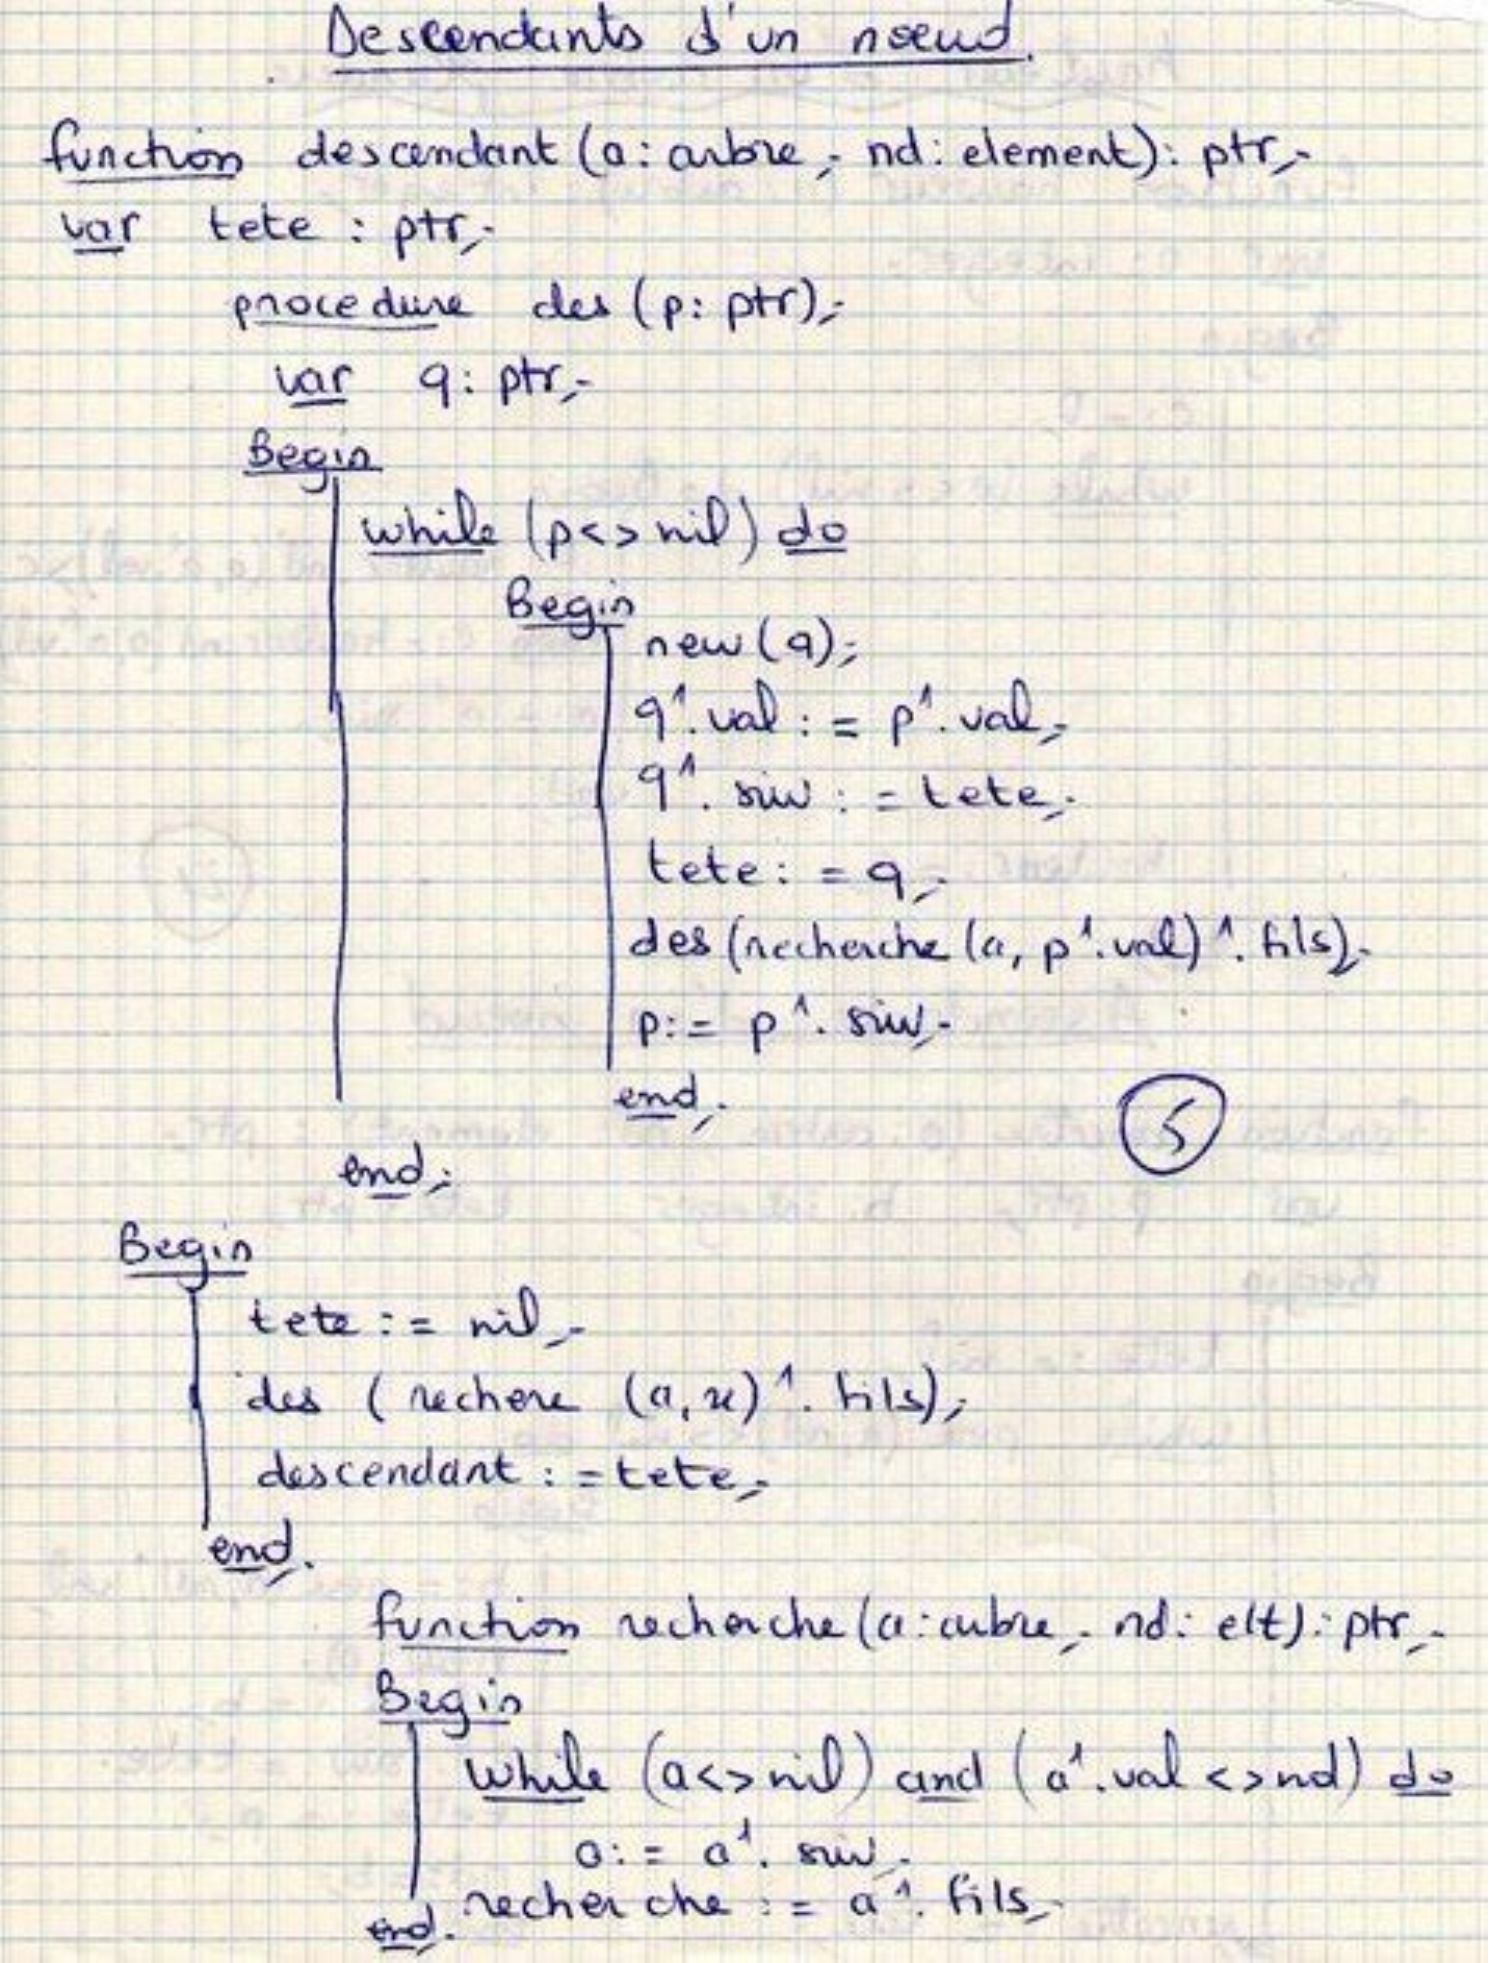 Descendants d'un noeud.
function descendant (a: arbre; nd: element): ptr;
var tete : ptr;
procedure des (p: ptr);
var q: ptr;
Begin
while (p<>nil) do
Begin
new(q);
q^.val := p^.val;
q^.suiv := tete;
tete := q;
des (recherche (a, p^.val)^.fils);
p := p^.suiv;
end;
5
end;
Begin
tete := nil;
des (rechere (a,x)^.fils);
descendant := tete;
end.
function recherche (a: arbre; nd: elt): ptr;
Begin
while (a<>nil) and (a^.val <> nd) do
a := a^.suiv;
recherche := a^.fils;
end.